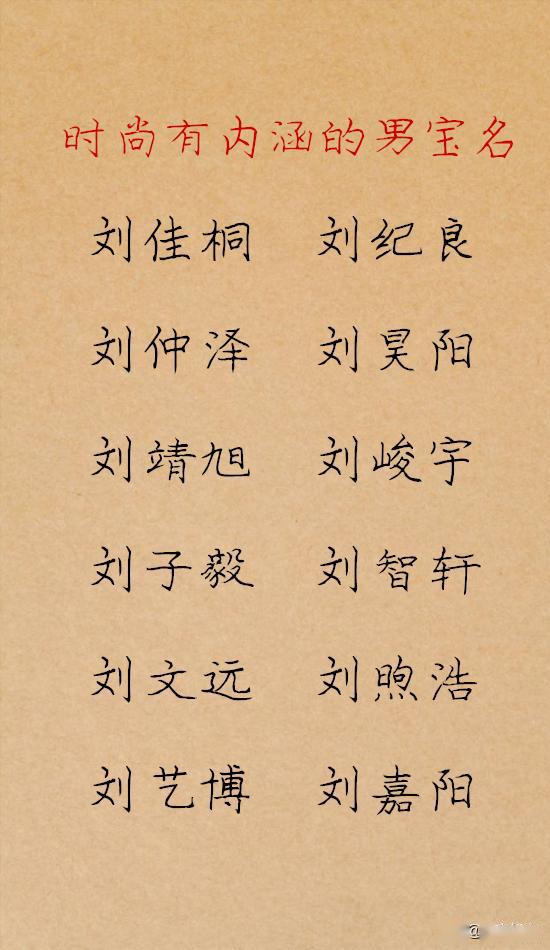 时尚有内涵的男宝名
刘佳桐 刘纪良
刘仲泽 刘昊阳
刘靖旭 刘峻宇
刘子毅 刘智轩
刘文远 刘煦浩
刘艺博 刘嘉阳
@